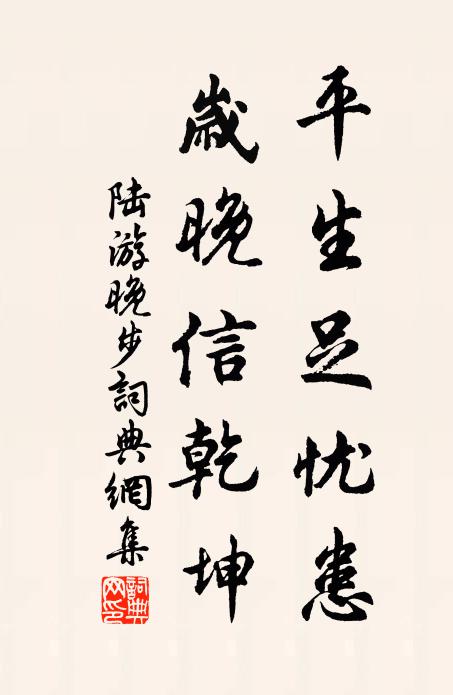 平生足忧患
歲晚信乾坤
陆游晚步詞典網集
詞典网印